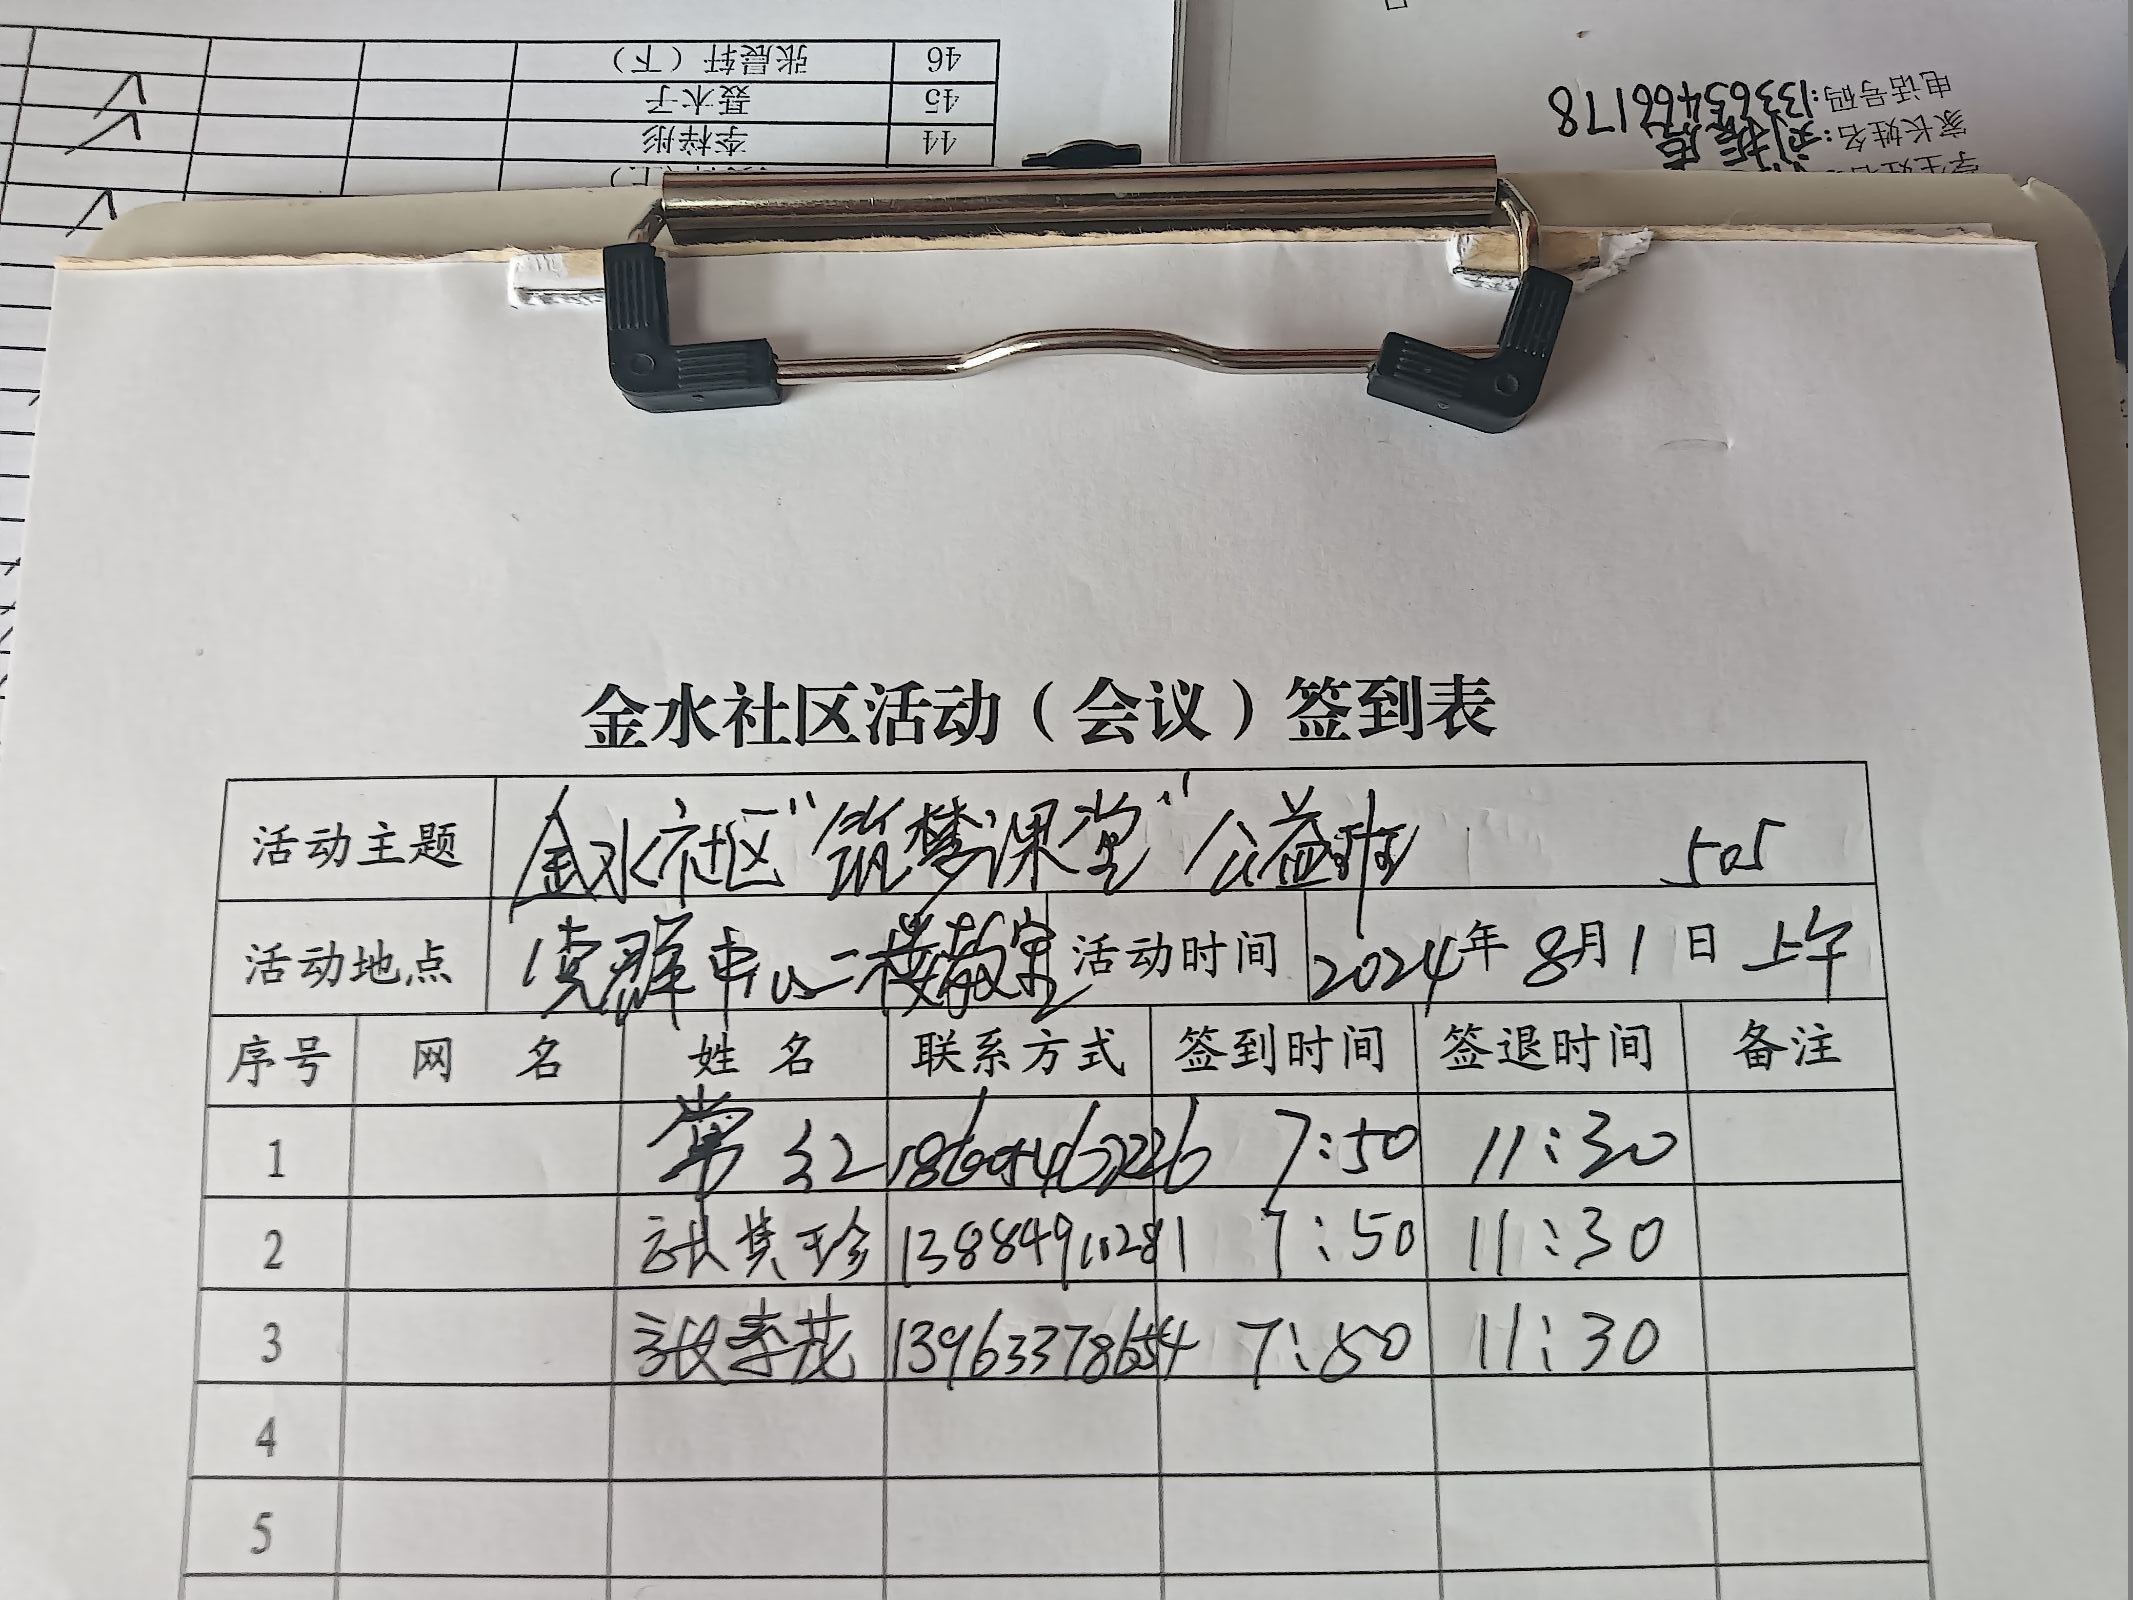 46 张晨轩（下）
45 聂木子
44 李梓彤
电话号码：13365466178
家长姓名：刘振
学生姓名
金水社区活动（会议）签到表
活动主题 金水社区“筑梦课堂”公益班 505
活动地点 党群中心二楼教室 活动时间 2024年8月1日上午
序号 网 名 姓 名 联系方式 签到时间 签退时间 备注
1 常红 7:50 11:30
2 张其珍 13884911281 7:50 11:30
3 张李花 13963378654 7:50 11:30
4
5